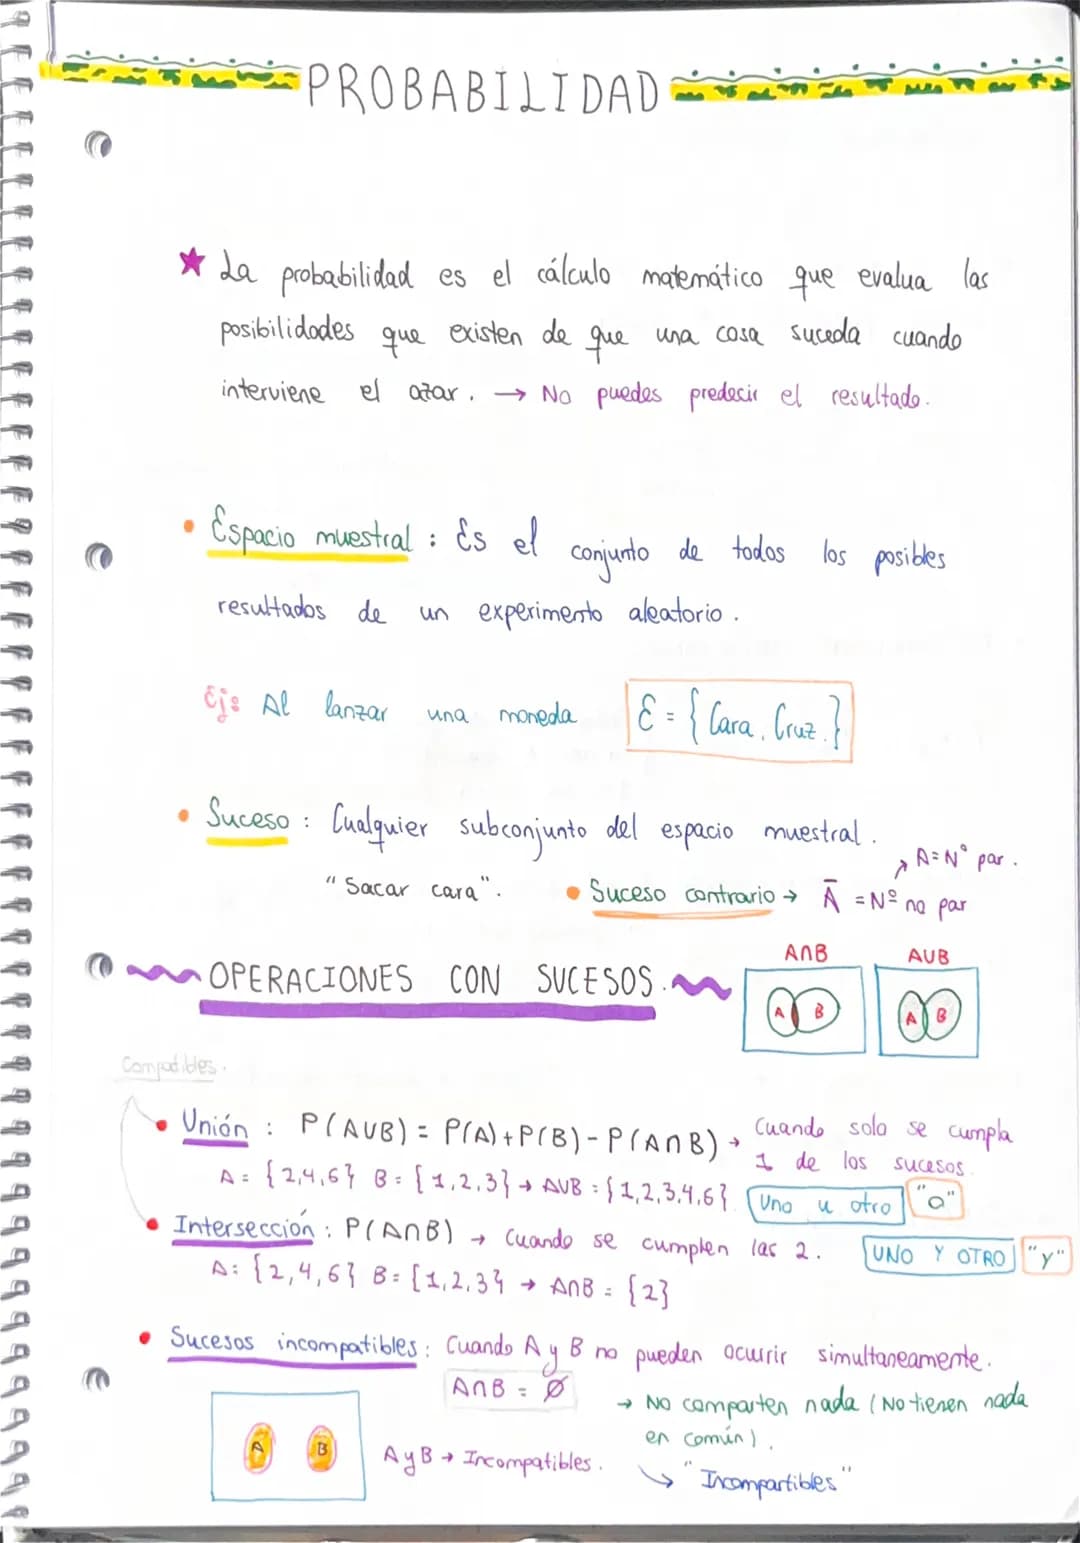 PROBABILIDAD
★ La probabilidad es el cálculo matemático que evalua las
posibilidades que existen de que una cosa suceda cuando
interviene el azar. → No puedes predecir el resultado.
• Espacio muestral : Es el conjunto de todos los posibles
resultados de un experimento aleatorio.
Ej: Al lanzar una moneda ℰ = { Cara, Cruz.}
• Suceso : Cualquier subconjunto del espacio muestral.
↗ A = Nº par.
"Sacar cara". • Suceso contrario → Ā = Nº no par
OPERACIONES CON SUCESOS.
A∩B AUB
A B A B
Compatibles.
• Unión : P(AUB) = P(A)+P(B)-P(A∩B) → Cuando solo se cumpla
1 de los sucesos.
A = {2,4,6} B = {1,2,3} → AUB = {1,2,3,4,6} Uno u otro "o"
• Intersección : P(A∩B) → Cuando se cumplen las 2. UNO Y OTRO "y"
A = {2,4,6} B = {1,2,3} → A∩B = {2}
• Sucesos incompatibles : Cuando A y B no pueden ocurrir simultaneamente.
A∩B = Ø
→ No comparten nada (No tienen nada
en común).
A B
A y B → Incompatibles.
↘ "Incompartibles"